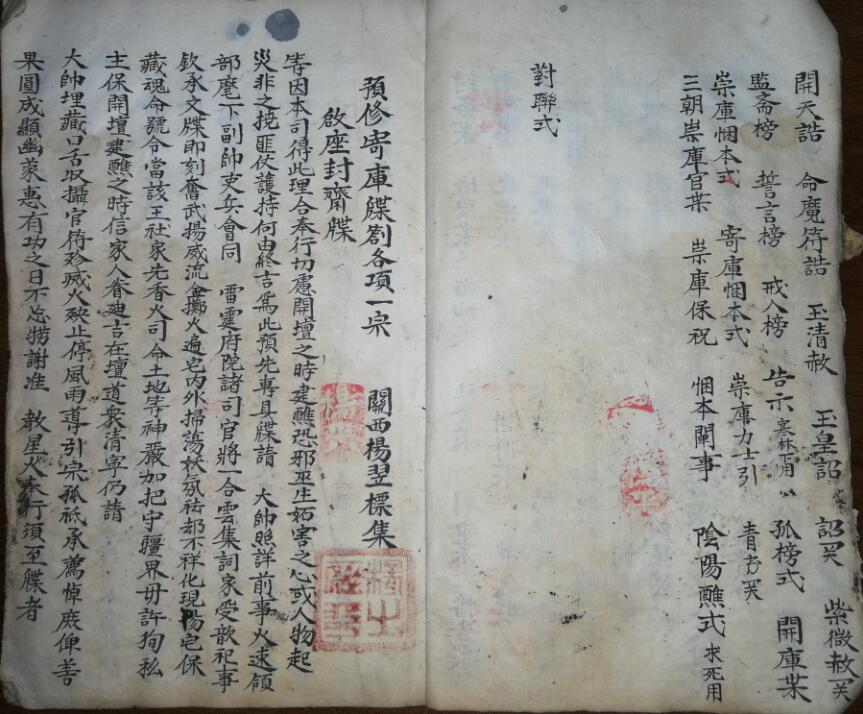 開天誥 命魔符誥 玉清赦 玉皇詔 詔關 紫微赦關
監斋榜 誓言榜 戒人榜 告示寒林用 孤榜式 開庫枼
崇庫悃本式 寄庫悃本式 崇庫力士引 青玄關
三朝崇庫官枼 崇庫保祝 悃本闡事 陰陽醮式求死用
對聯式
預修寄庫牒劄各項一宗 關西楊翌標集
啟座封齋牒
等因本司得此理合奉行切慮開壇之時建醮恐邪巫生妬害之心或人物起
災非之撓匪仗護持何由終吉爲此預先專具牒請 大帥照詳前事火速領
部麾下副帥吏兵會同 雷霆府院諸司官將一合雲集詞家受歆祀事
欽承文牒即刻奮武揚威流金擲火遍宅内外掃蕩妖氛祛却不祥化現陽宅保
藏魂命號令當該王社家先香火司命土地等神嚴加把守疆界毋許狥私
主保開壇建醮之時信家人眷迪吉在壇道衆清寧仍請
大帥埋藏口舌收攝官符殄滅火殃止停風雨導引宗孤祇承薦悼庻俾善
果圓成顯幽蒙惠有功之日不忘犒謝准 教星火奉行須至牒者